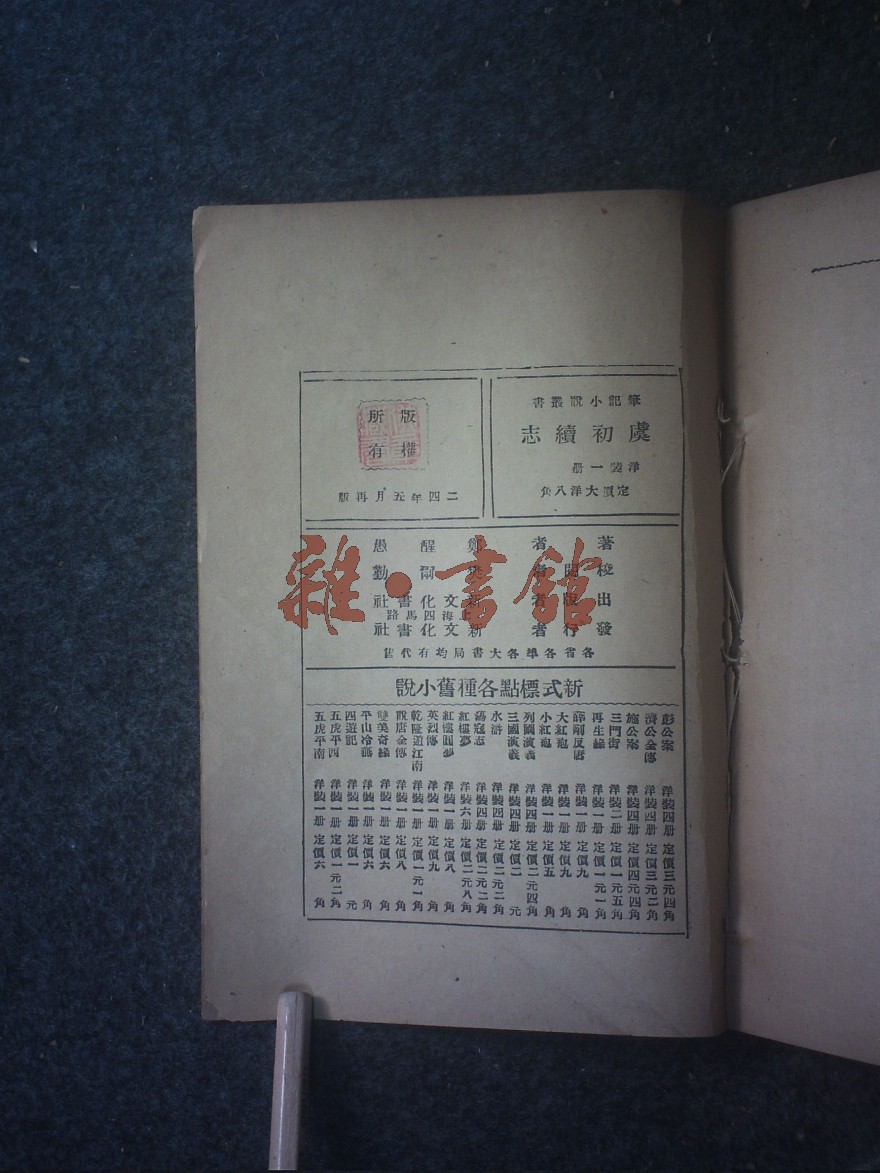 筆記小說叢書
虞初續志
洋裝一册
定價大洋八角
版權
所有
二四年五月再版
著者 鄭醒愚
校閱者 勤
出版者 新文化書社
上海四馬路
發行者 新文化書社
各省各埠各大書局均有代售
新式標點各種舊小說
彭公案 洋裝四册 定價三元四角
濟公全傳 洋裝四册 定價三元二角
施公案 洋裝四册 定價四元四角
三門街 洋裝二册 定價一元五角
再生緣 洋裝一册 定價一元一角
薛剛反唐 洋裝一册 定價九角
大紅袍 洋裝一册 定價九角
小紅袍 洋裝一册 定價五角
列國演義 洋裝四册 定價二元四角
三國演義 洋裝四册 定價二元
水滸 洋裝四册 定價二元二角
蕩寇志 洋裝四册 定價二元二角
紅樓夢 洋裝六册 定價二元八角
紅樓圓夢 洋裝一册 定價八角
英烈傳 洋裝一册 定價九角
乾隆遊江南 洋裝一册 定價一元一角
說唐全傳 洋裝一册 定價八角
雙美奇緣 洋裝一册 定價六角
平山冷燕 洋裝一册 定價六角
四遊記 洋裝一册 定價一元
五虎平西 洋裝一册 定價一元二角
五虎平南 洋裝一册 定價六角
雜·書館